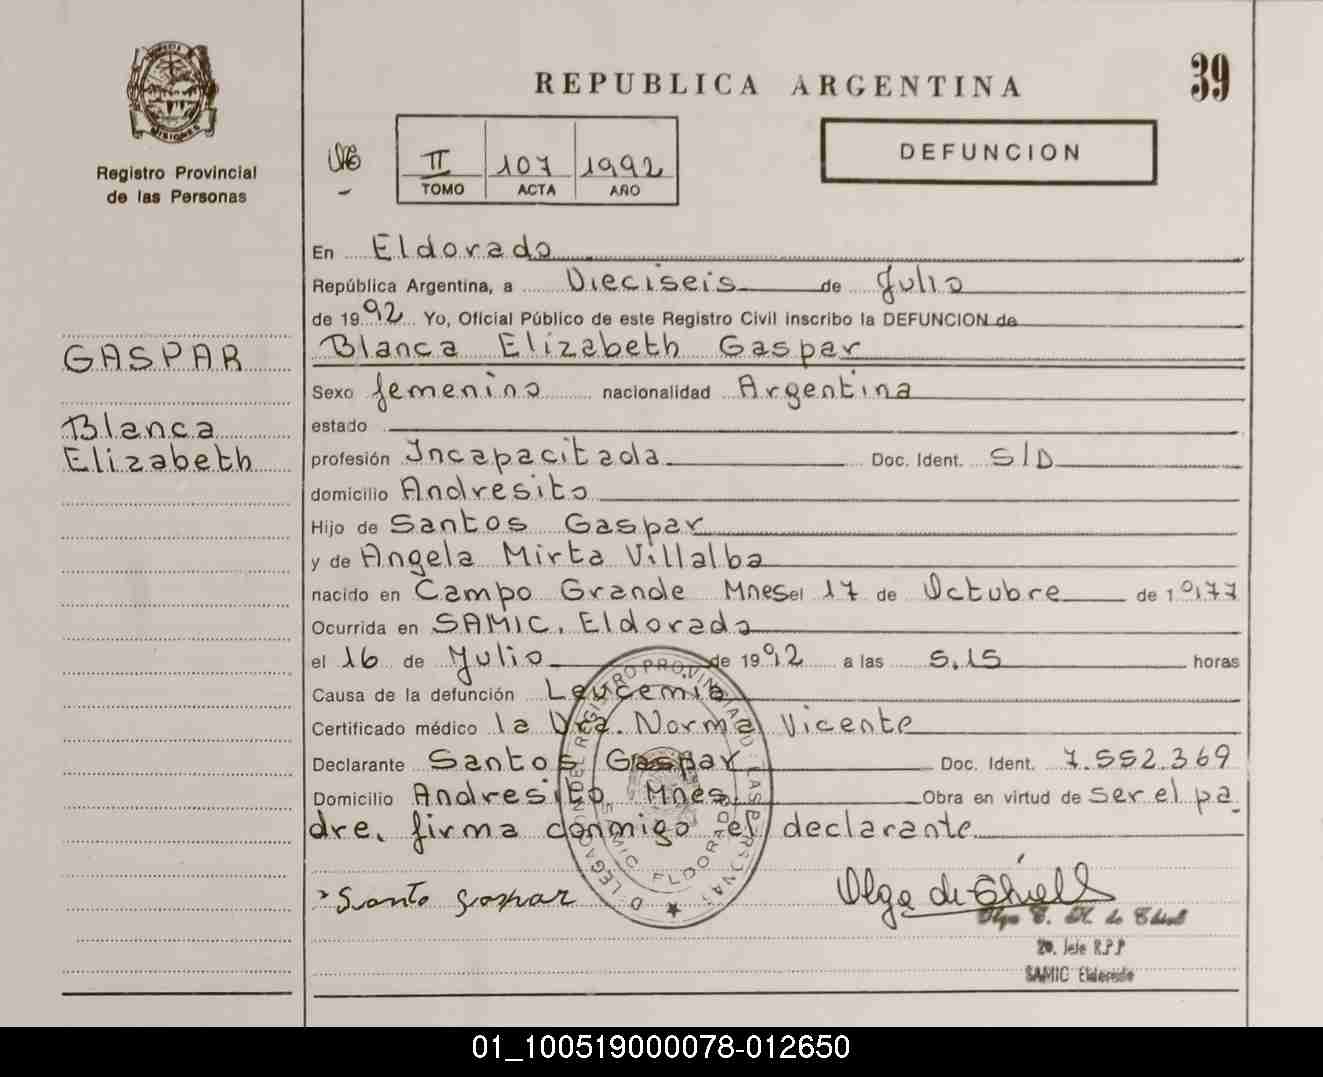 REPUBLICA ARGENTINA
39
MISIONES
Registro Provincial
de las Personas
II 107 1992
TOMO ACTA AÑO
DEFUNCION
En Eldorado
República Argentina, a Dieciseis de Julio
de 1992 Yo, Oficial Público de este Registro Civil inscribo la DEFUNCION de
GASPAR
Blanca Elizabeth
Blanca Elizabeth Gaspar
Sexo femenino nacionalidad Argentina
estado
profesión Incapacitada Doc. Ident. S/D
domicilio Andresito
Hijo de Santos Gaspar
y de Angela Mirta Villalba
nacido en Campo Grande Mnes el 17 de Octubre de 1977
Ocurrida en SAMIC. Eldorado
el 16 de Julio de 1992 a las 5.15 horas
Causa de la defunción Leucemia
Certificado médico la Dra. Norma Vicente
Declarante Santos Gaspar Doc. Ident. 7.552.369
Domicilio Andresito Mnes. Obra en virtud de ser el pa
dre, firma conmigo el declarante
DELEGACION DEL REGISTRO PROVINCIAL DE LAS PERSONAS
SAMIC ELDORADO
Santo gaspar
Olga de Thiell
Olga C. H. de Thiell
2o. Jefe R.P.P
SAMIC Eldorado
01_100519000078-012650